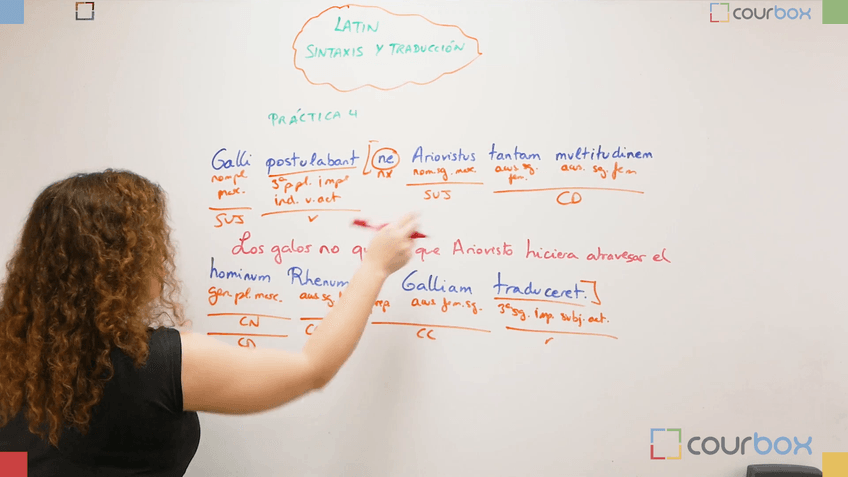 courbox
LATIN
SINTAXIS Y TRADUCCIÓN
PRÁCTICA 4
Galli postulabant [ne Ariovistus tantam multitudinem
nom pl. masc. 3ª p pl. impf ind. v. act nx nom sg. masc. acus sg. fem. acus. sg. fem
SUJ V SUJ CD
Los galos no que Ariovisto hiciera atravesar el
hominum Rhenum Galliam traduceret.]
gen. pl. masc. acus sg. prep acus fem. sg. 3ª sg. imp subj. act.
CN CC
CD
courbox